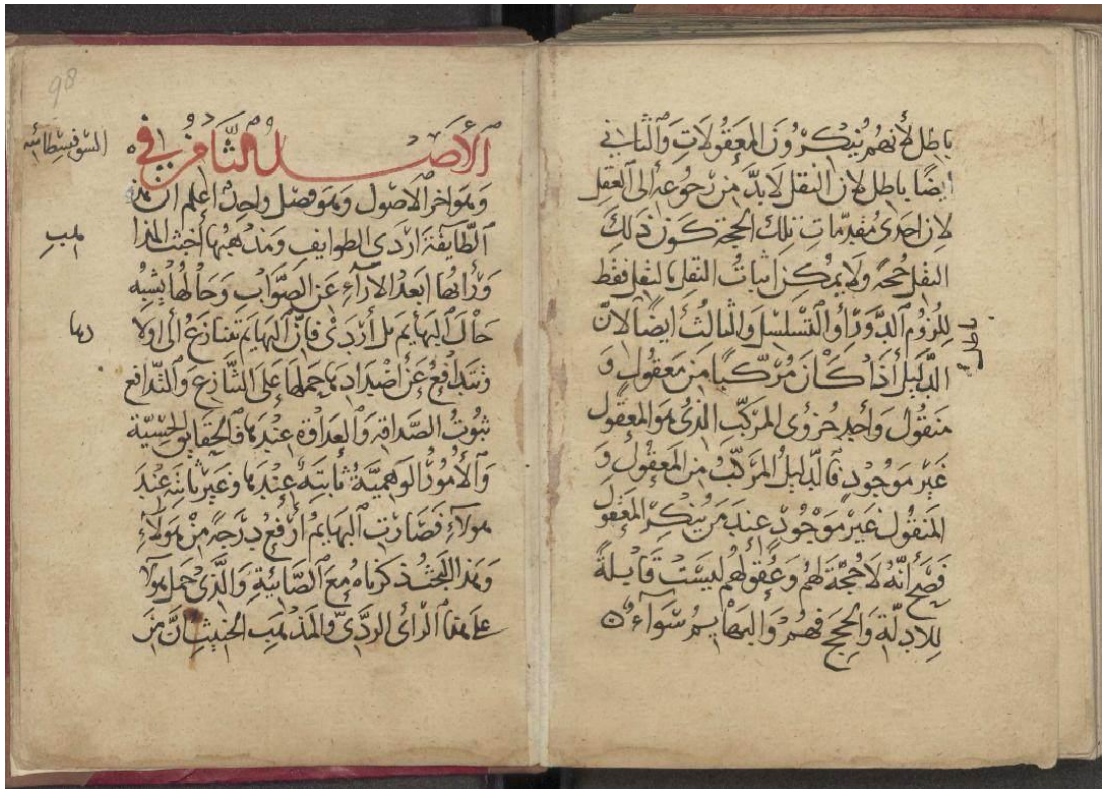 باطل لأنهم ينكرون المعقولات والثاني
ايضًا باطل لان النقل لابدّ من رجوعه الى العقل
لان احدى مقدّمات تلك الحجة كون ذلك
النقل حجة ولا يمكن اثبات النقل بالنقل فقط
للزوم الدّور أو التّسلسل والثالث ايضًا لانّ
باطل
الدّليل أذا كان مركّبًا من معقول و
منقول وأحد جزؤى المركّب الذى هو المعقول
غير موجود فالدّليل المركّب من المعقول و
المنقول غير موجود عند من ينكر المعقول
فصحّ أنّه لا حجّة لهم وعقولهم ليست قابلة
للادلّة والحجج فهم والبهايم سوآء
98
الأصل الثامن في
السوفسطائية
وهو اخر الاصول وهو فصل واحد اعلم ان هذه
الطّايفة اردى الطوايف ومذهبها أخبث المذا
هب
ورأئها ابعد الارآء عن الصّواب وحالها يشبه
حال البهايم بل أردى فانّ البهايم تتنازع الى اولا
دها
وتتدافع عن أضدادها حملها على التّنازع والتّدافع
ثبوت الصّداقة والعداوة عندها فالحقايق الحسّية
والأمور الوهميّة ثابتة عندها وغير ثابتة عند
هولآء فصارت البهايم أرفع درجة من هولآء
وهذا البحث ذكرناه مع الصّابئية والّذى حمل هولا
على هذا الرأى الردىّ والمذهب الخبيث انّ من